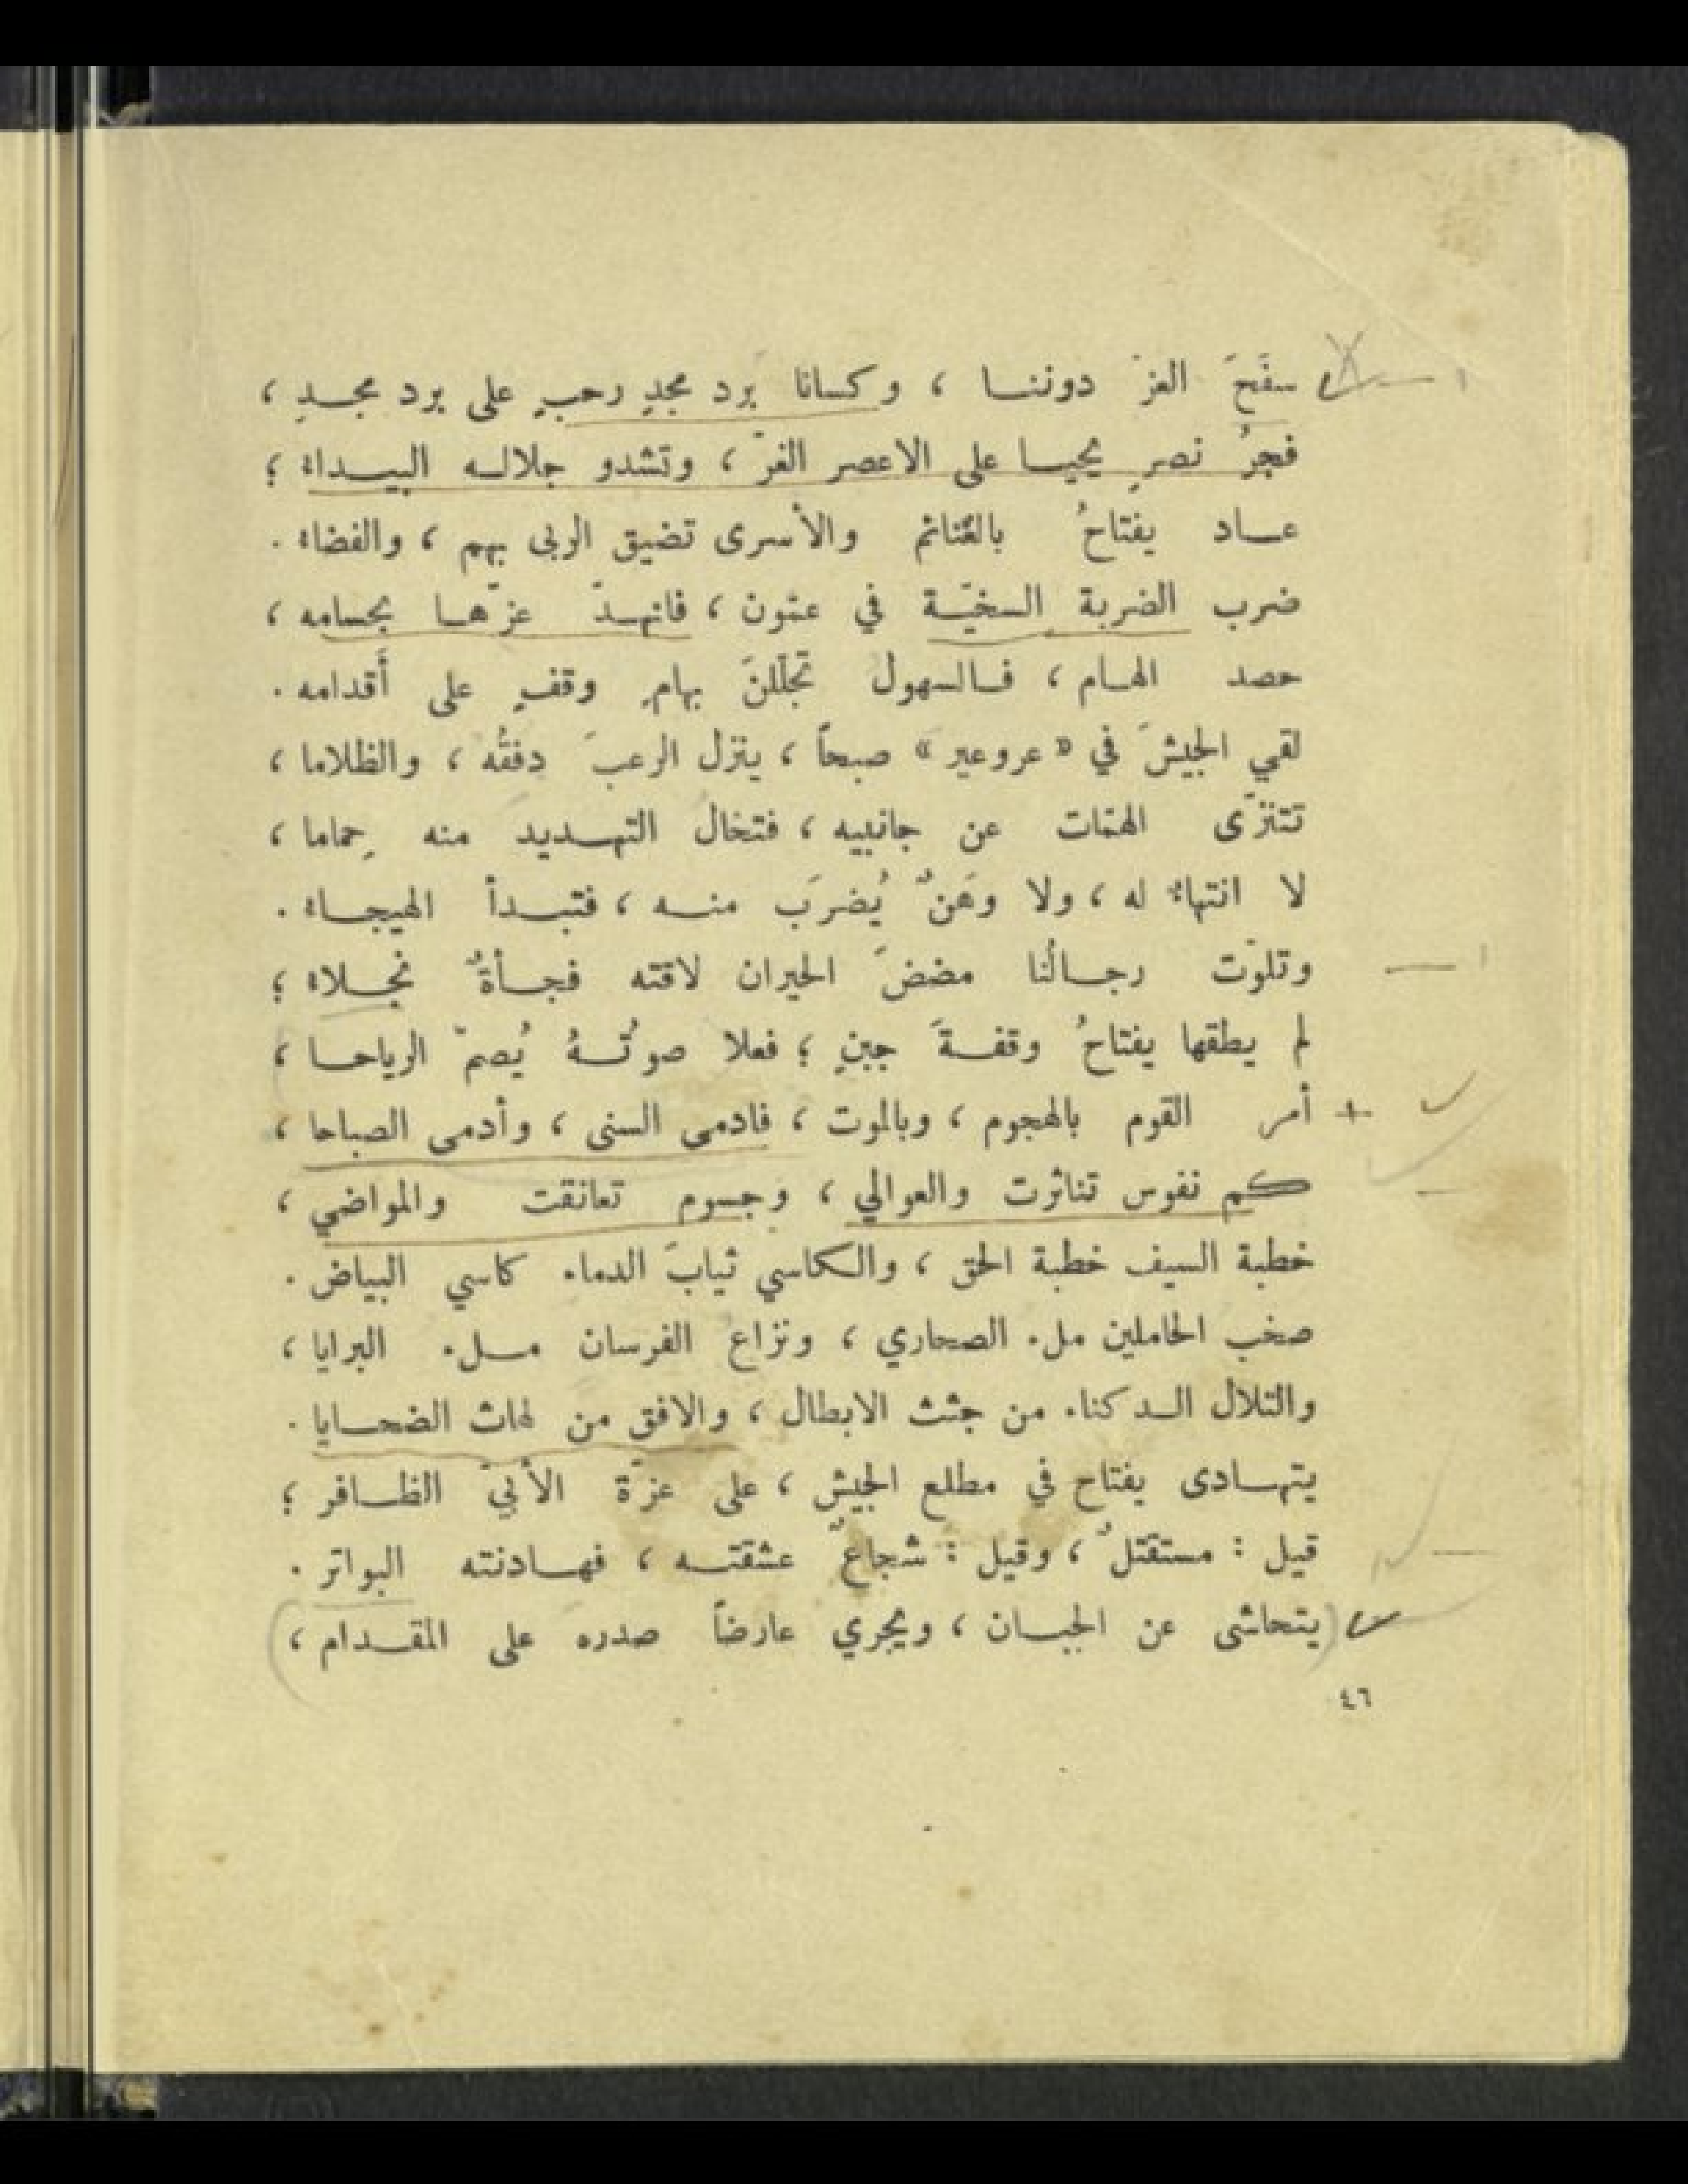 سفَحَ العزّ دوننا ، وكسانا بُرد مجدٍ رحبٍ على برد مجدِ ،
فجرُ نصرٍ يحيا على الاعصر الغرّ ، وتشدو جلاله البيداء ؛
عاد يفتاحُ بالغنائم والأسرى تضيق الربى بهم ، والفضاء .
ضرب الضربة السخيّة في عمّون ، فانهدّ عزّها بحسامه ،
حصد الهام ، فالسهول تجلّلنَ بهامٍ وقفٍ على أقدامه .
لقي الجيشَ في « عروعير » صبحاً ، ينزل الرعبَ دفقُه ، والظلاما ،
تتنزّى الهمّات عن جانبيه ، فتخال التهديد منه حِماما ،
لا انتهاء له ، ولا وهَنٌ يُضرَب منه ، فتبدأ الهيجاء .
وتلوّت رجالُنا مضضَ الحيران لاقته فجأةٌ نجلاء ؛
لم يطقها يفتاحُ وقفةَ جبنٍ ؛ فعلا صوتُهُ يُصمّ الرياحا ،
أمر القوم بالهجوم ، وبالموت ، فادمى السنى ، وأدمى الصباحا ،
كم نفوس تناثرت والعوالي ، وجسوم تعانقت والمواضي ،
خطبة السيف خطبة الحق ، والكاسي ثيابَ الدماء كاسي البياض .
صخب الحاملين ملء الصحاري ، ونزاع الفرسان ملء البرايا ،
والتلال الدكناء من جثث الابطال ، والافق من لهاث الضحايا .
يتهادى يفتاح في مطلع الجيش ، على عزّة الأبيّ الظافر ؛
قيل : مستقتلٌ ، وقيل : شجاعٌ عشقته ، فهادنته البواتر .
يتحاشى عن الجبان ، ويجري عارضاً صدره على المقدام ،
٤٦